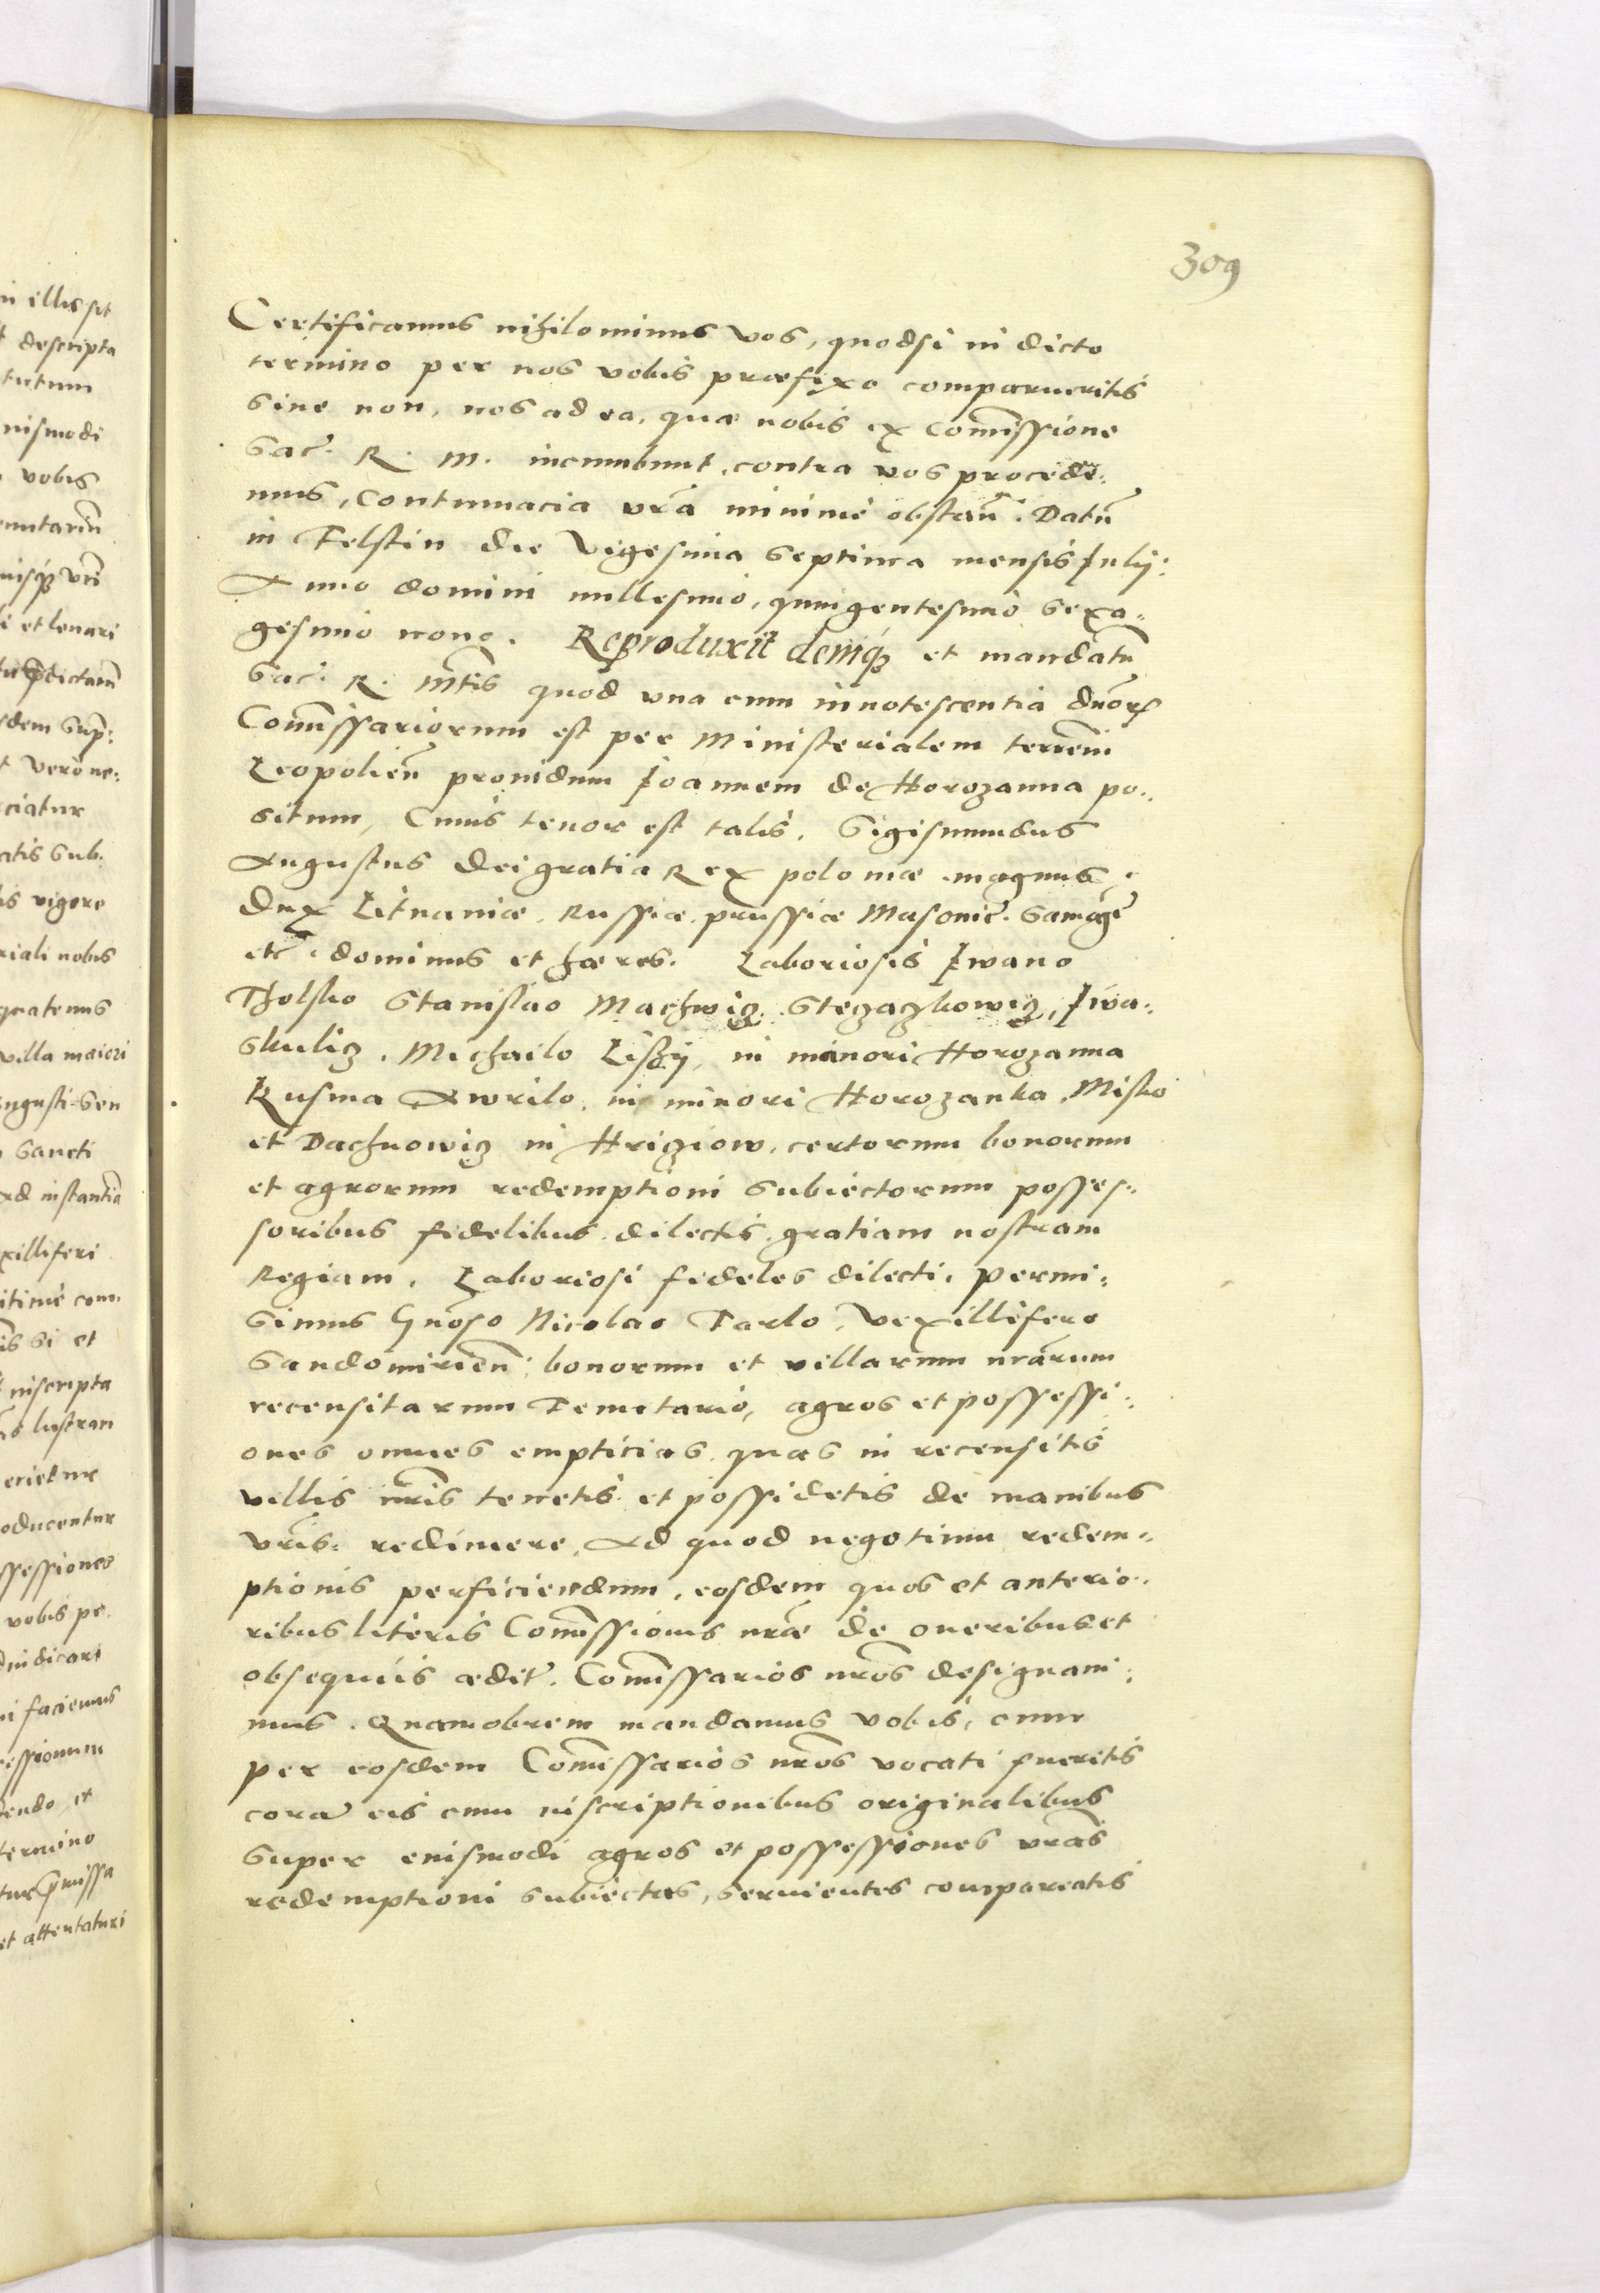 309
Certificamus nihilominus vos, quodsi in dicto
termino per nos vobis præfixo comparueritis
sive non, nos ad ea, quæ nobis ex Comissione
Sac. R. M. incumbunt, contra vos procede:
mus, contumacia vrã minimè obstañ. Datũ
in Felstin die Vigesima septima mensis Julij:
Anno domini millesimo, quingentesimo sexa:
gesimo nono. Reproduxit deniq et mandatũ
Sac. R. Mtis quod una cum innotescentia dnõr
Comissariorum est per Ministerialem terreñ
Leopolieñ providum Joannem de Horozanna po:
situm, Cuius tenor est talis. Sigismundus
Augustus Dei gratia Rex poloniæ magnus
Dux Lituaniæ, Russiæ, prussiæ Masoviẽ. Samagẽ
etc. dominus et hæres. Laboriosis Iwano
Tholsko Stanislao Machwicz. Steczaczkowicz, Iwa:
skulicz. Michailo Liszij, in minori Horozanna
Kusma Awrilo, in minori Horozanka, Misko
et Dachnowicz in Hricziow, certorum bonorum
et agrorum redemptioni subiectorum posses:
soribus fidelibus dilectis, gratiam nostram
Regiam. Laboriosi fideles dilecti, permi:
simus Gnõso Nicolao Tarlo, Vexillifero
Sandomirieñ: bonorum et villarum nrãrum
recensitarum Tenutario, agros et possessi:
ones omnes empticias quas in recensitis
villis nrĩs tenetis et possidetis de manibus
vrĩs: redimere, Ad quod negotium redem:
ptionis perficiendum, eosdem quos et anterio:
ribus literis Comissionis nrãe de oneribus et
obsequiis ædit. Comissarios nrõs designavi:
mus. Quamobrem mandamus vobis, cum
per eosdem Comissarios nrõs vocati fueritis
corã eis cum inscriptionibus originalibus
super eiusmodi agros et possessiones vrãs
redemptioni subiectas, servientes compareatis